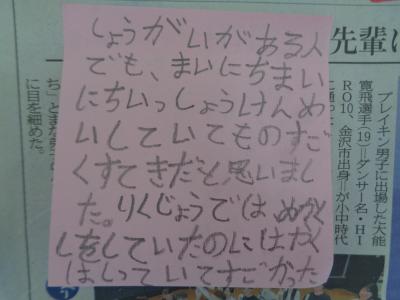 しょうがいがある人
でも、まいにちまい
にちいっしょうけんめ
いしていてものすご
くすてきだと思いまし
た。りくじょうでは めかく
しをしていたのにはやく
はしっていてすごかった
先輩に
ブレイキン男子に出場した大能
寛飛選手(19)=ダンサー名・HI
RO10、金沢市出身=が小中時代
に目を細めた。